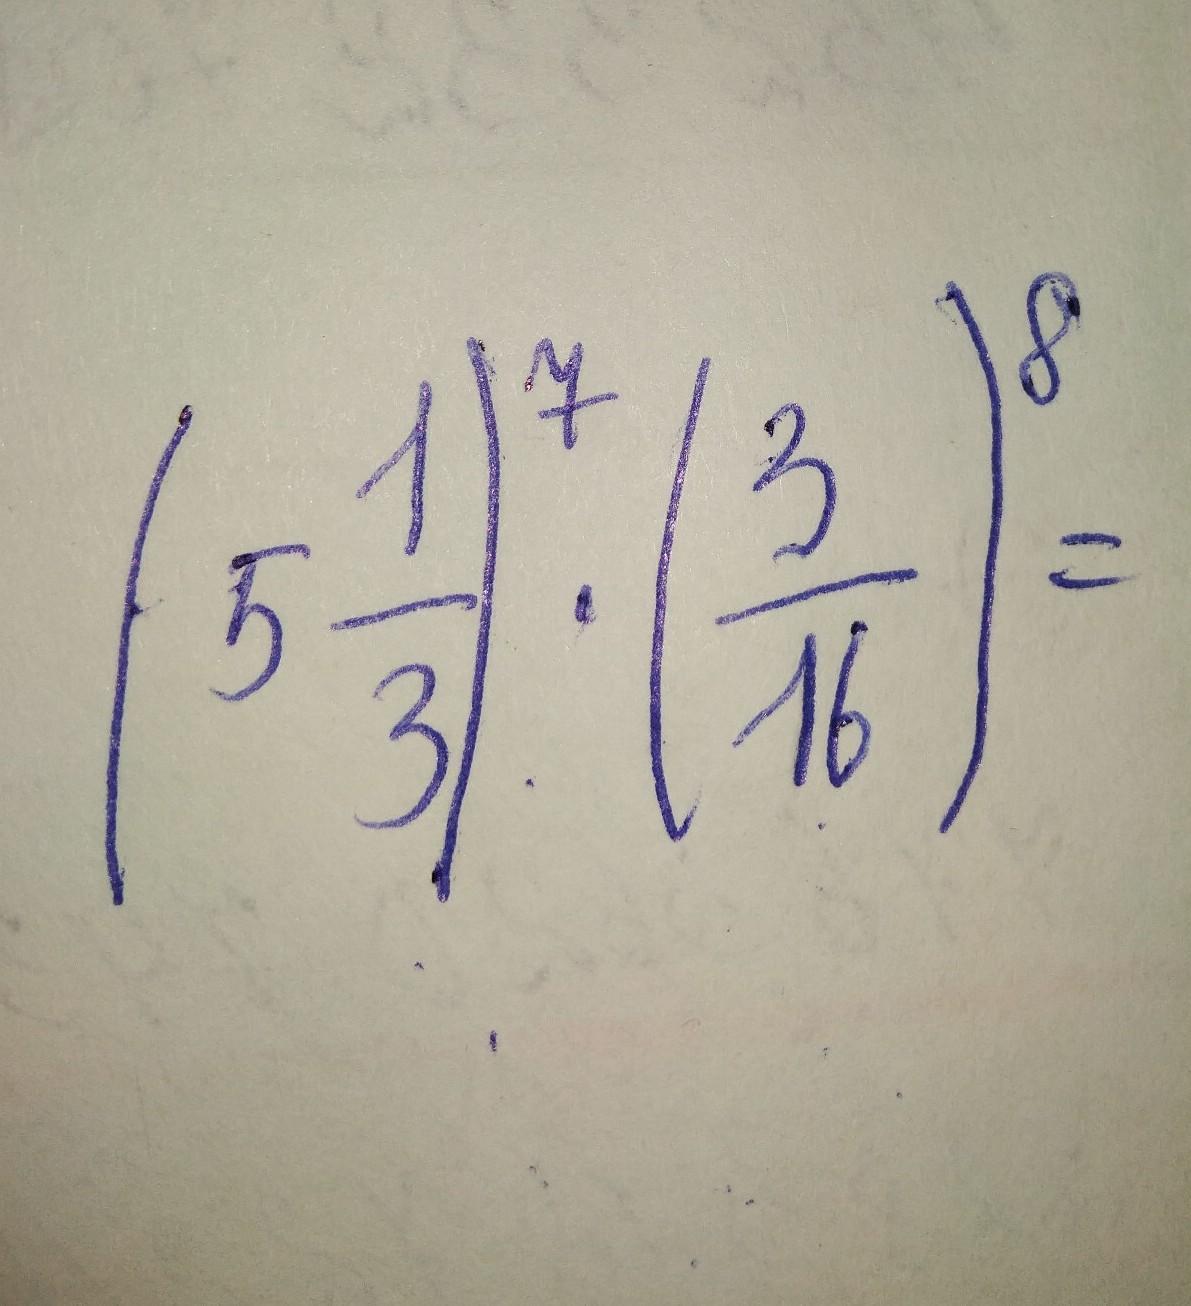 (5 1/3)^7 · (3/16)^8 =